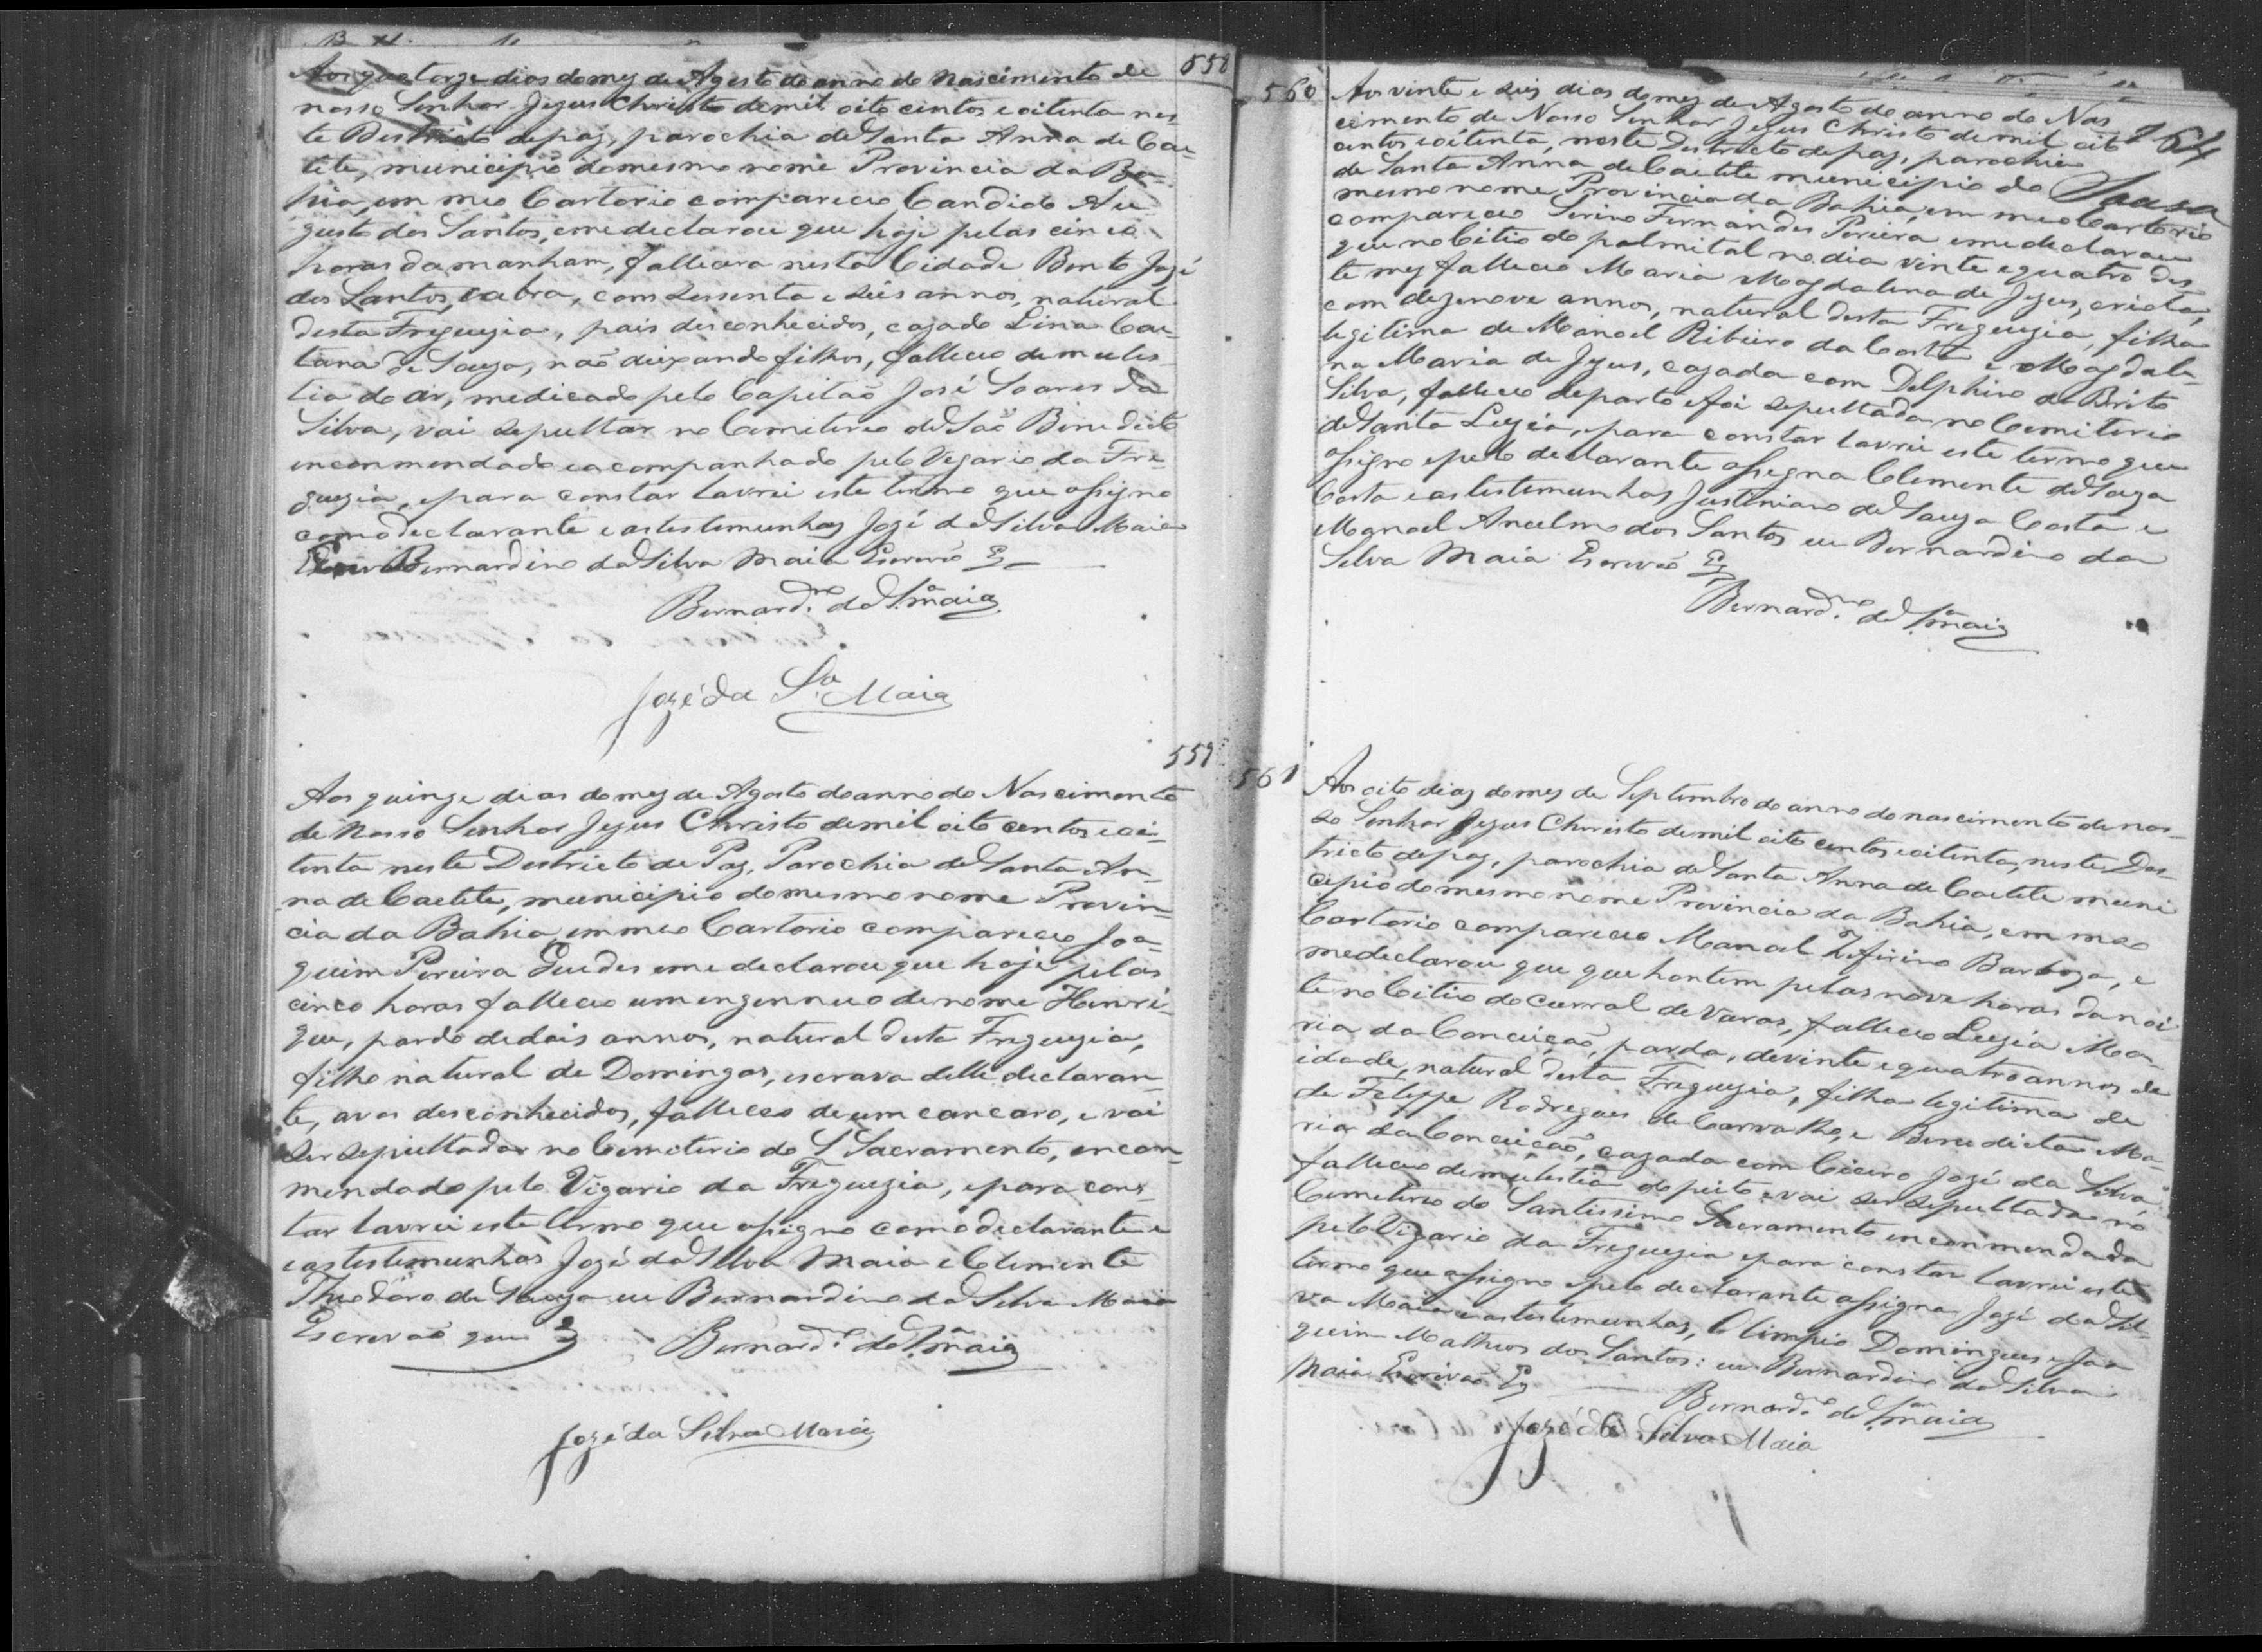 558
Aos quatorze dias do mez de Agosto do anno do nascimento de
nosso Senhor Jezus Christo de mil oito centos e oitenta nes-
te Destricto de paz, parochia de Santa Anna de Cae-
tete, municipio do mesmo nome Provincia da Ba-
hia, em meo Cartorio compareceo Candido Au
gusto dos Santos, e me declarou que hoje pelas cinco
horas da manham, fallecera nesta Cidade Bento Jozé
dos Santos, cabra, com sessenta e seis annos, natural
desta Freguezia, pais desconhecidos, cazado Lina Cae-
tana de Souza, naõ deixando filhos, falleceo de moles-
tia do ar, medicado pelo Capitaõ José Soares da
Silva, vai sepultar no Cemiterio de Saõ Binidicto
encommendado e acompanhado pelo Vegario da Fre-
guezia, e para constar lavrei este termo que assigno
com o declarante e as testemunhas Jozé da Silva Maia
Eu Bernardino da Silva Maia Escrivaõ
Bernard.no da S.a Maia
Jozé da S.a Maia
559
Aos quinze dias do mez de Agosto do anno do Nascimento
de Nosso Senhor Jezus Christo de mil oito centos e oi-
tenta neste Destricto de Paz, Parochia de Santa An-
na de Caetete, municipio do mesmo nome Provin-
cia da Bahia, em meo Cartorio compareceo Joa-
quim Pereira Guedes e me declarou que hoje pelas
cinco horas falleceo um engennuo de nome Henri-
que, pardo de dois annos, natural desta Freguezia,
filho natural de Domingas, escrava delle declaran-
te, avos desconhecidos, falleceo de um cancaro, e vai
ser sepultador no Cemiterio do S Sacramento, encom-
mendado pelo Vigario da Freguezia, e para cons-
tar lavrei este termo que assigno com o declarante e
e as testemunhas Jozé da Silva Maia e Clemente
Theodoro de Souza eu Bernardino da Silva Maia
Escrevaõ que
Bernard.o da S.a Maia
Jozé da Silva Maia
560
164
Souza
Aos vinte e seis dias do mez de Agosto do anno do Nas
cimento de Nosso Senhor Jezus Christo de mil oito
centos e oitenta, neste Destricto de paz, parochia
de Santa Anna de Caetete municipio do
mesmo nome Provincia da Bahia, em meo Cartorio
compareceo Serino Fernandes Pereira e me declarou
que no Citio do palmital no dia vinte e quatro des
te mez falleceo Maria Magdalena de Jezus, criola,
com dezenove annos, natural desta Freguezia, filha
legitima de Manoel Ribeiro da Costa e Magdale-
na Maria de Jezus, cazada com Delphino de Brito
Silva, falleceo de parto e foi sepultada no Cemiterio
de Santa Luzia, e para constar lavrei este termo que
assigno e pelo declarante assigna Clemente de Souza
Costa e as testemunhas Justiniano de Souza Costa e
Manoel Ancelmo dos Santos eu Bernardino da
Silva Maia Escrevaõ
Bernard.no da S.a Maia
561
Aos oito dias do mez de Septembro do anno do nascimento de nos-
so Senhor Jezus Christo de mil oito centos e oitenta, neste Des-
tricto de paz, parochia de Santa Anna de Caetete muni
cipio do mesmo nome Provincia da Bahia, em meo
Cartorio compareceo Manoel Zifirino Barboza, e
me declarou que que hontem pelas nove horas da noi
te no Citio do Curral de Varas, falleceo Luzia Ma-
ria da Conceiçaõ, parda, de vinte e quatro annos de
idade, natural desta Freguezia, filha legitima de
de Felippe Rodregues de Carvalho, e Benedicta Ma-
ria da Conceiçaõ, cazada com Cicero Jozé da Silva,
falleceo de mulestia do peito e vai ser sepultada no
Cemiterio do Santissimo Sacramento encommendada
pelo Vigario da Freguezia e para constar lavrei este
termo que assigno e pelo declarante assigna Jozé da Sil-
va Maia e as testemunhas, Olimpio Domingues e Joa
quim Matheos dos Santos: eu Bernardino da Silva
Maia Escrivaõ
Bernard.o da S.a Maia
Jozé da Silva Maia